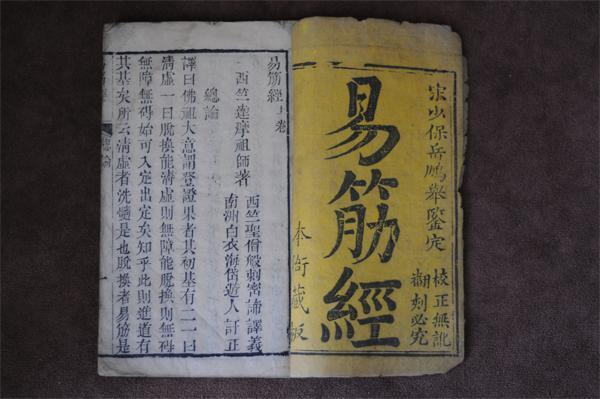 宋少保岳鵬舉鑒定
校正無訛
翻刻必究
易筋經
本衙藏板
易筋經上卷
西竺達摩祖師著
西竺聖僧般剌密諦譯義
南洲白衣海岱遊人訂正
總論
譯曰佛祖大意謂登證果者其初基有二一曰
清虛一曰脫換能清虛則無障能脫換則無碍
無障無碍始可入定出定矣知乎此則進道有
其基矣所云清虛者洗髓是也脫換者易筋是
總論